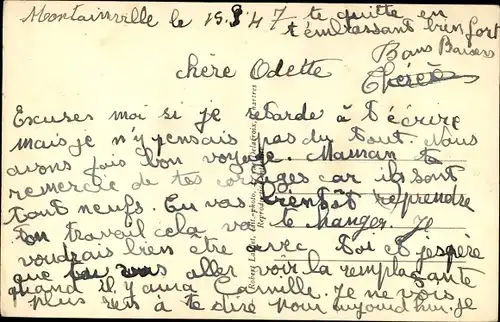 Montainville le 15.8.47
chère Odette
Excuses moi si je retarde à t'écrire
mais je n'y pensais pas du tout. Nous
avons fais bon voyage. Maman te
remercie de tes corsages car ils sont
tout neufs. Tu vas bientôt reprendre
ton travail cela va te changer. Je
voudrais bien être avec toi et j'espère
que tu vas aller voir la remplaçante
quand il y aura Camille. Je ne vois
plus rien à te dire pour aujourd'hui. je
te quitte en
t'embrassant bien fort
Bons Baisers
Thérèse